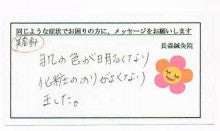 同じような症状でお困りの方に、メッセージをお願いします
美容鍼
長森鍼灸院
肌の色が明るくなり
化粧ののりがよくなり
ました。